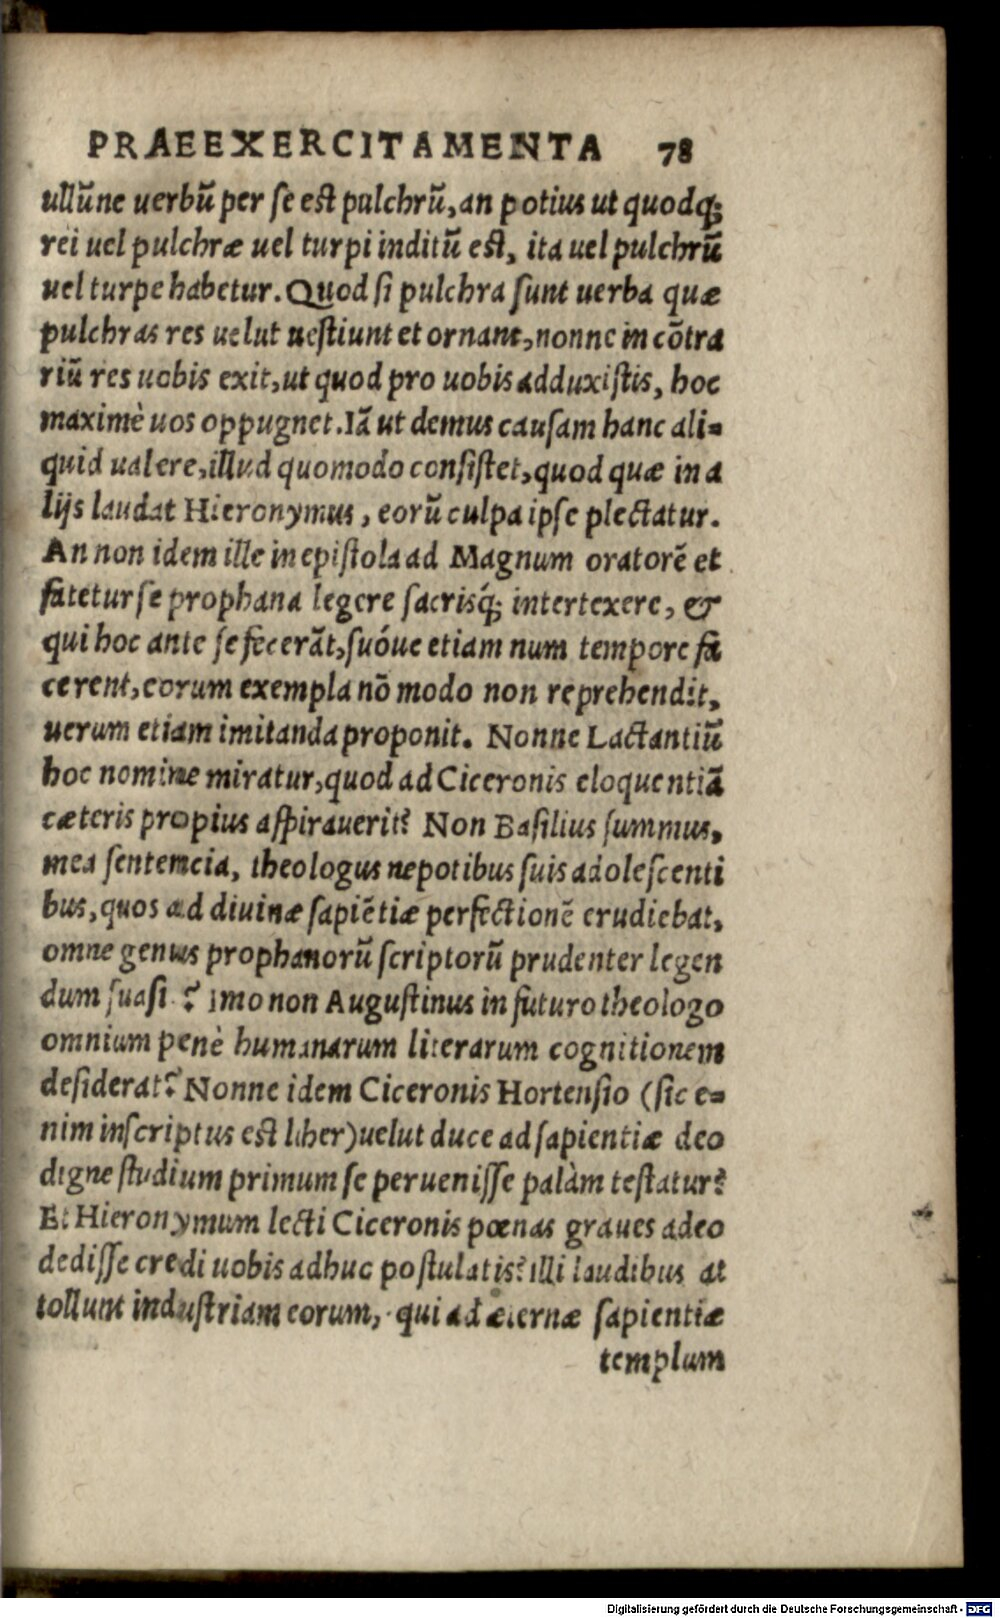 PRAEEXERCITAMENTA 78
ullũne uerbũ per se est pulchrũ, an potius ut quodq;
rei uel pulchræ uel turpi inditũ est, ita uel pulchrũ
uel turpe habetur. Quod si pulchra sunt uerba quæ
pulchras res uelut uestiunt et ornant, nonne in cõtra
riũ res uobis exit, ut quod pro uobis adduxistis, hoc
maximè uos oppugnet. Iã ut demus causam hanc ali=
quid ualere, illud quomodo consistet, quod quæ in a
lijs laudat Hieronymus, eorũ culpa ipse plectatur.
An non idem ille in epistola ad Magnum oratorẽ et
fatetur se prophana legere sacrisq́; intertexere, &
qui hoc ante se fecerãt, suóue etiam num tempore fa
cerent, eorum exempla nõ modo non reprehendit,
uerum etiam imitanda proponit. Nonne Lactantiũ
hoc nomine miratur, quod ad Ciceronis eloquentiã
cæteris propius aspirauerit? Non Basilius summus,
mea sentemcia, theologus nepotibus suis adolescenti
bus, quos ad diuinæ sapiẽtiæ perfectionẽ erudiebat,
omne genus prophanorũ scriptorũ prudenter legen
dum suasi ? Imo non Augustinus in futuro theologo
omnium penè humanarum literarum cognitionem
desiderat? Nonne idem Ciceronis Hortensio (sic e=
nim inscriptus est liber) uelut duce ad sapientiæ deo
digne studium primum se peruenisse palàm testatur?
Et Hieronymum lecti Ciceronis pœnas graues adeo
dedisse credi uobis adhuc postulatis? illi laudibus at
tollunt industriam eorum, qui ad æternæ sapientiæ
templum
Digitalisierung gefördert durch die Deutsche Forschungsgemeinschaft - DFG